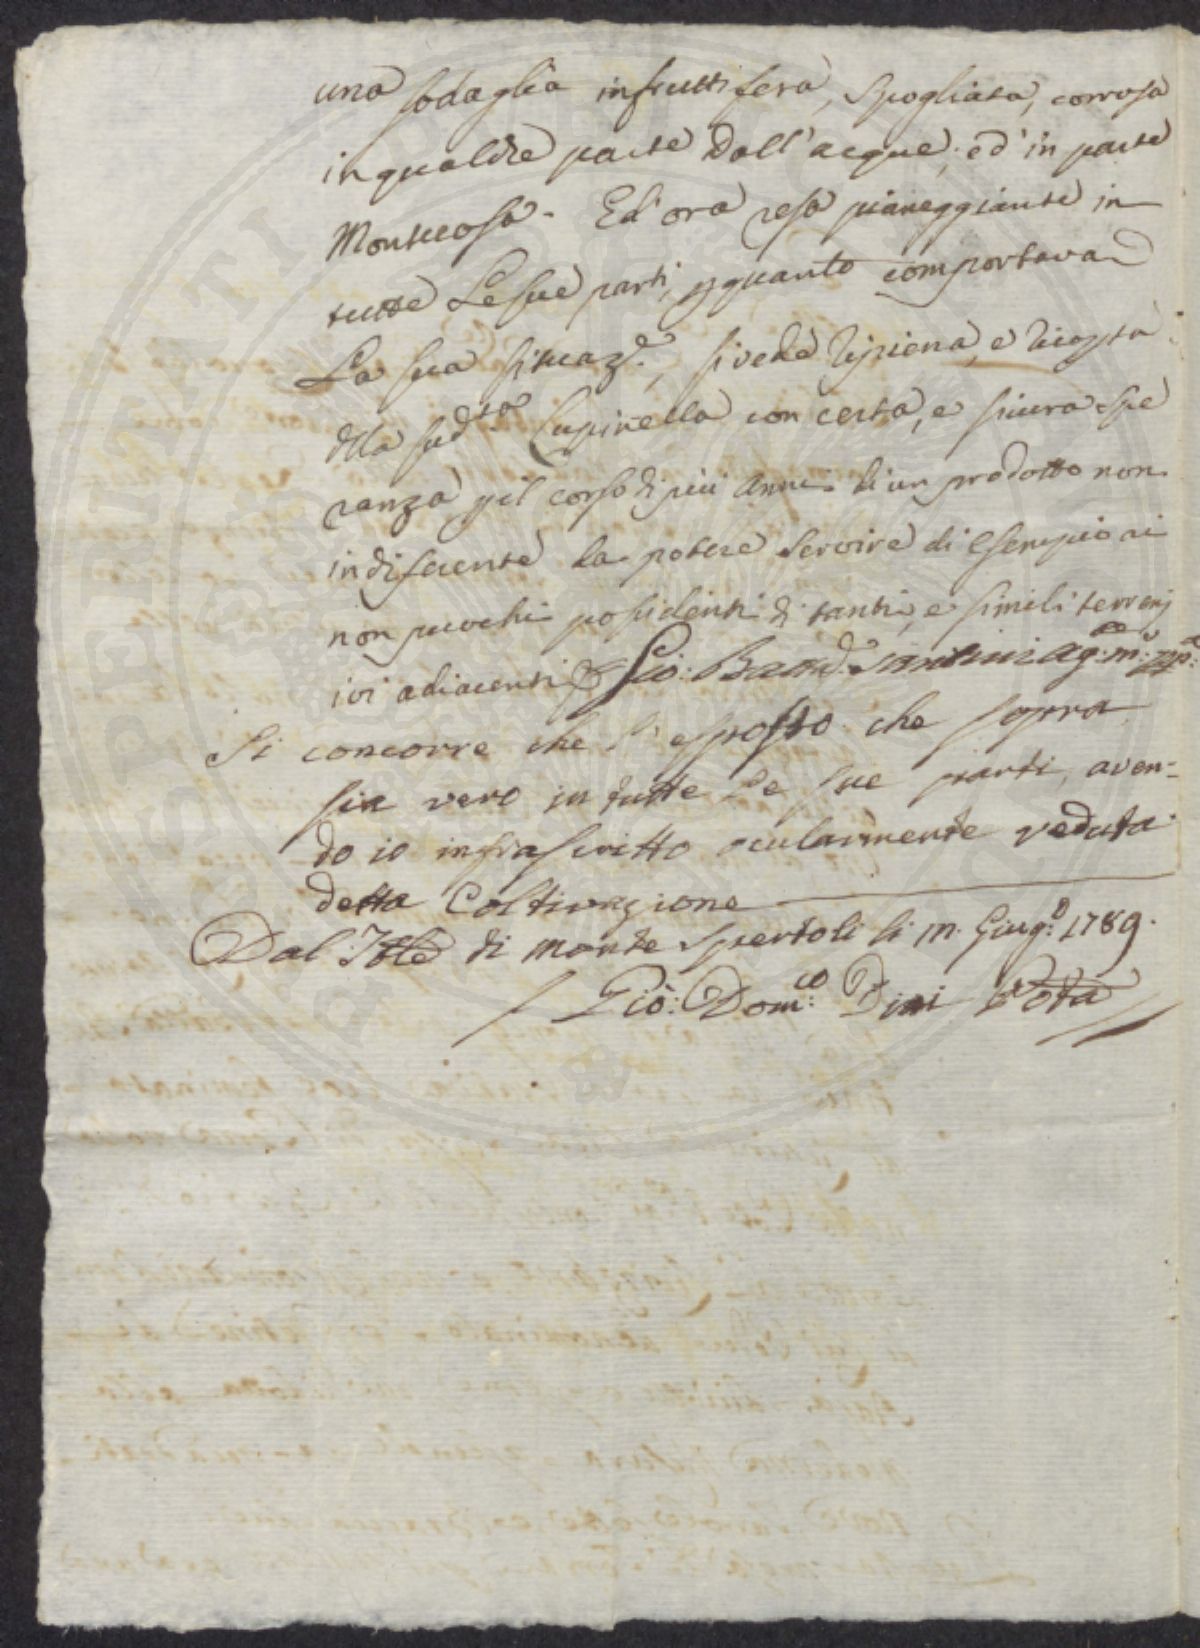 una sodaglia infruttifera, spogliata, corrosa
in qualche parte dall'acque, ed in parte
Montuosa. Ed ora resa pianeggiante in
tutte Le sue parti, p quanto comportava
La sua situaz.e, si vede ripiena, e ricop.ta
dlla sud.ta Lupinella con certa, e sicura spe
ranza p il corso di piu anni di un prodotto non
indiferente da potere servire di esempio ai
non puochi possidenti di tanti, e simili terreni
ivi adiacenti Gio: Batta Santini Ag.e m.o pp.a
Si concorre che l'esposto che sopra
sia vero in tutte Le sue parti, aven-
do io infrascritto ocularmente veduta
detta Coltivazione
Dal Tble di Monte Spertoli li m. Giug.o 1789.
Gio: Dom.co Dini Po͠tà